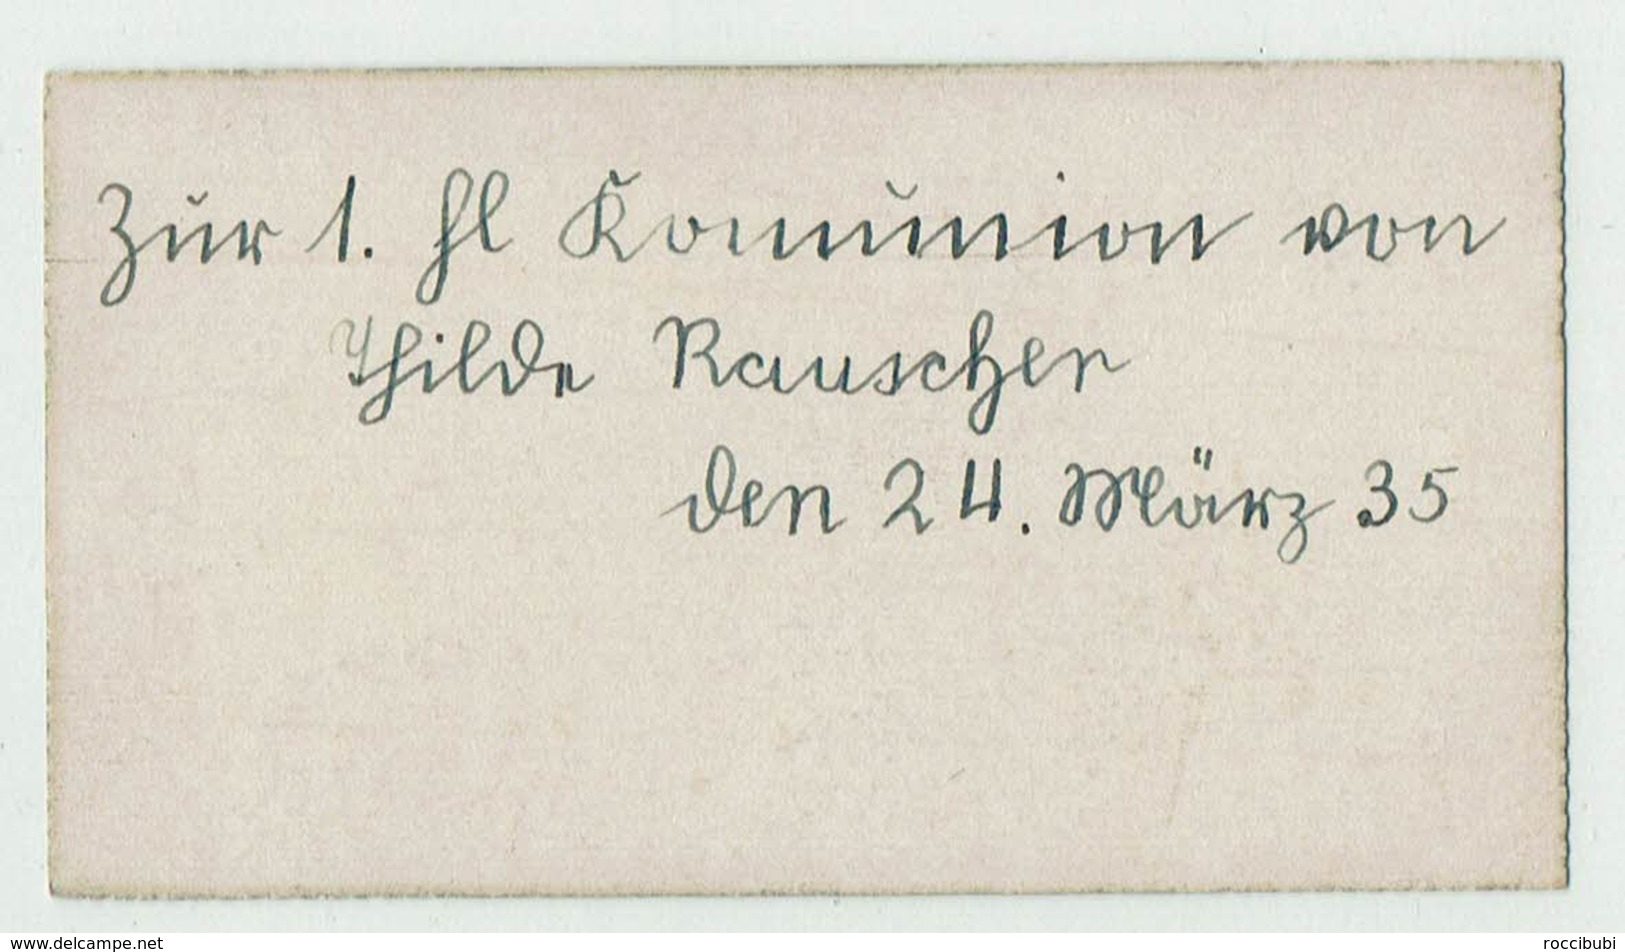 Zur 1. hl Komunion von
Thilde Rauscher
den 24. März 35
www.delcampe.net
roccibubi